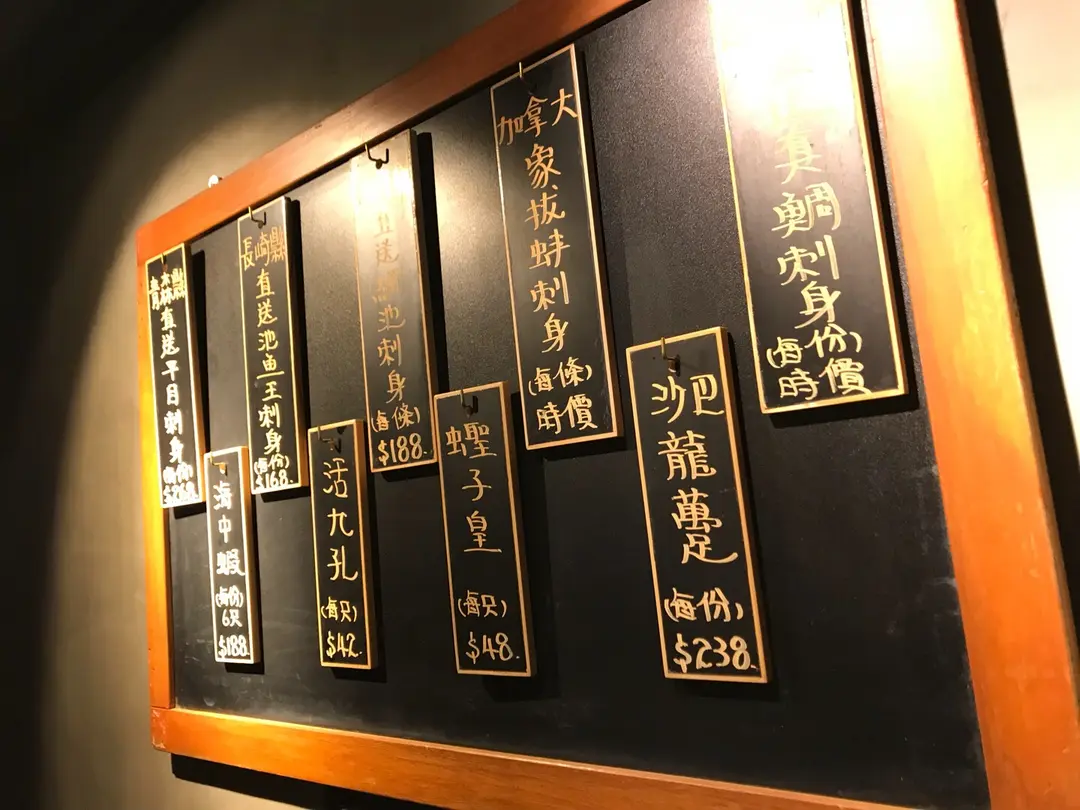 青森縣直送平目刺身
(每份)
$268.
長崎縣直送池魚王刺身
(每份)
$168.
直送
池刺身
(每條)
$188.
加拿大
象拔蚌刺身
(每條)
時價
真鯛刺身
(每份)
時價
海中蝦
(每份)
6只
$188.
活九孔
(每只)
$42.
蟶子皇
(每只)
$48.
沙巴
龍躉
(每份)
$238.